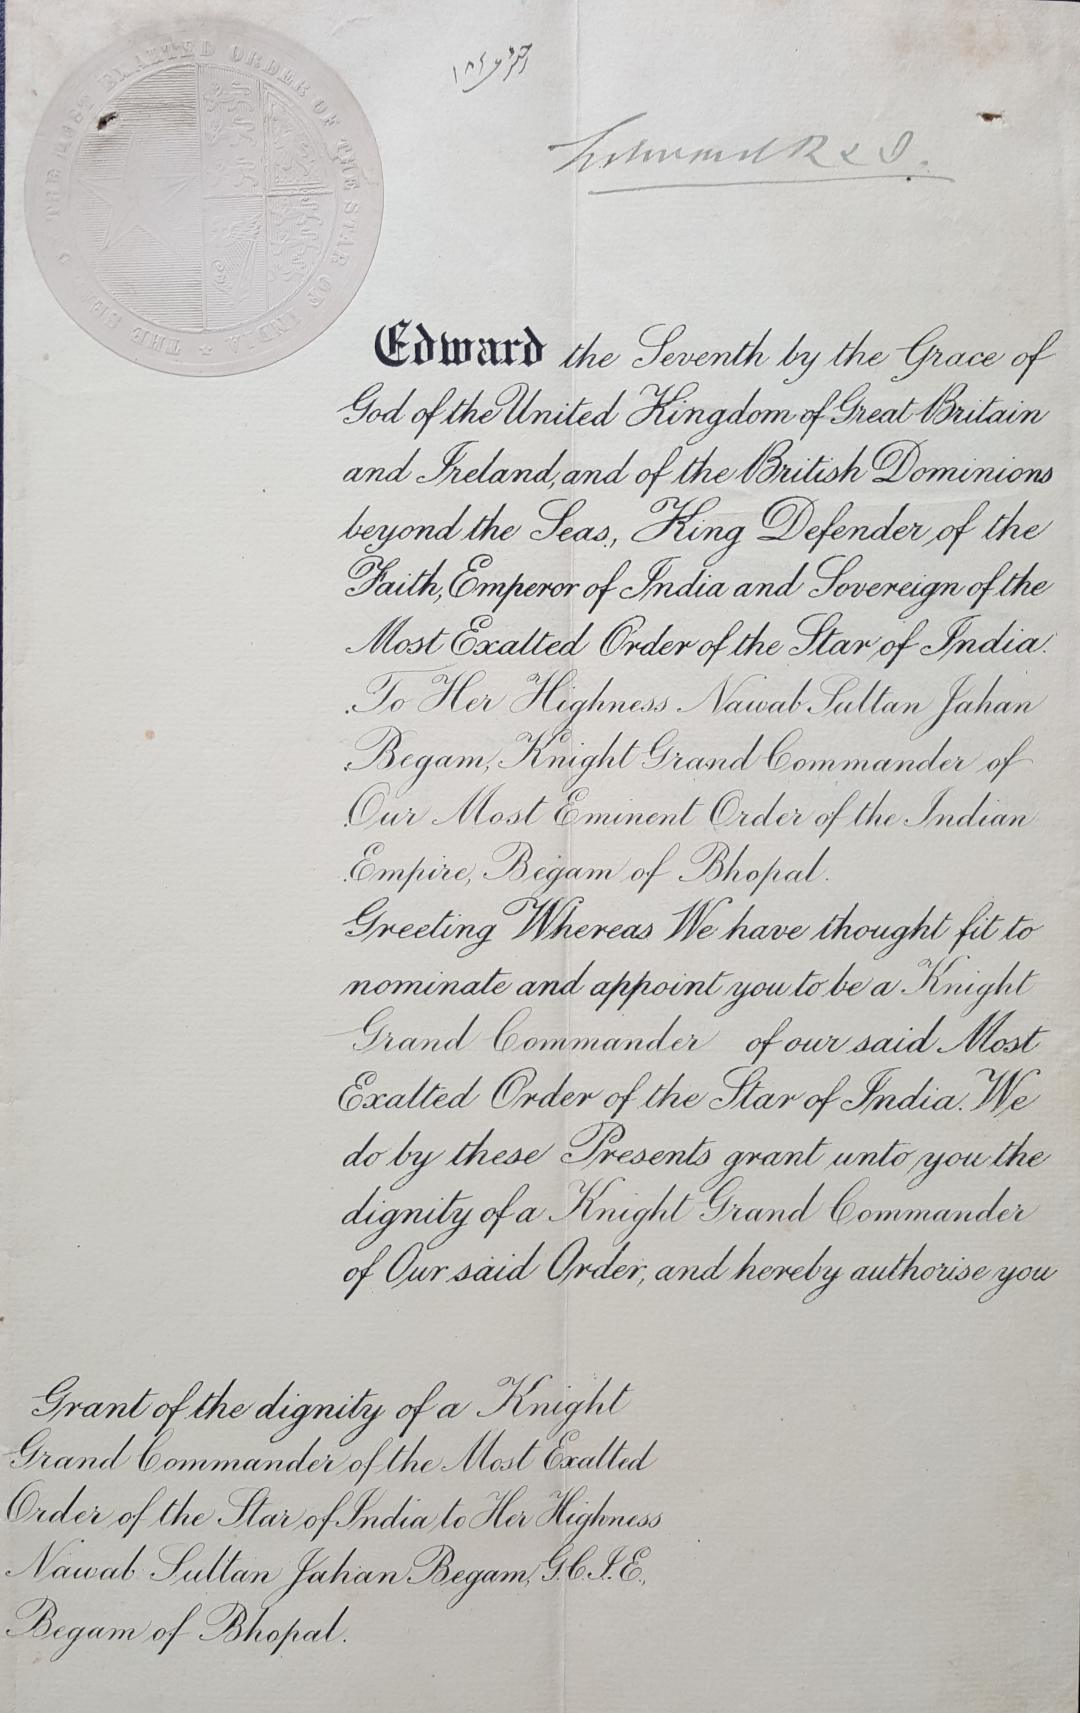 THE SEAL OF THE MOST EXALTED ORDER OF THE STAR OF INDIA
Edward R & I.
Edward the Seventh by the Grace of
God of the United Kingdom of Great Britain
and Ireland, and of the British Dominions
beyond the Seas, King Defender of the
Faith, Emperor of India and Sovereign of the
Most Exalted Order of the Star of India.
To Her Highness Nawab Sultan Jahan
Begam, Knight Grand Commander of
Our Most Eminent Order of the Indian
Empire, Begam of Bhopal.
Greeting Whereas We have thought fit to
nominate and appoint you to be a Knight
Grand Commander of our said Most
Exalted Order of the Star of India. We
do by these Presents grant unto you the
dignity of a Knight Grand Commander
of Our said Order, and hereby authorise you
Grant of the dignity of a Knight
Grand Commander of the Most Exalted
Order of the Star of India to Her Highness
Nawab Sultan Jahan Begam, G.C.I.E.,
Begam of Bhopal.